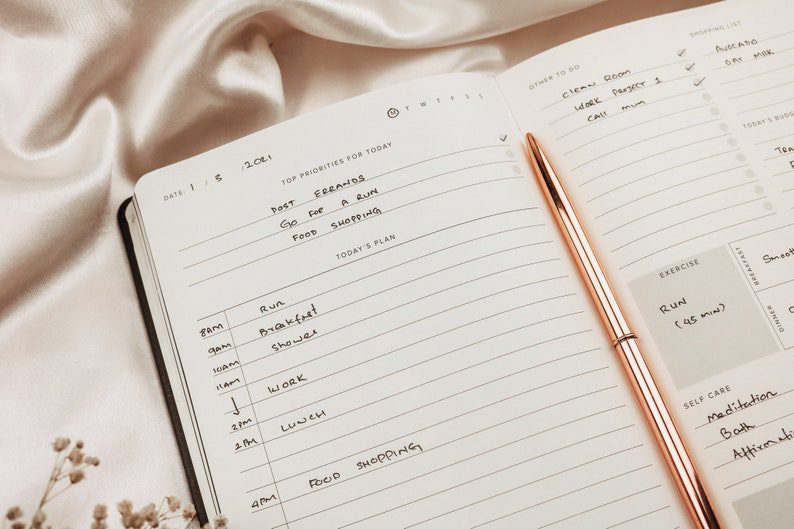 DATE: 1 / 3 /2021
M T W T F S S
TOP PRIORITIES FOR TODAY
POST ERRANDS
GO FOR A RUN
FOOD SHOPPING
TODAY'S PLAN
8AM RUN
9AM Breakfast
10AM Shower
11AM WORK
2PM
2PM LUNCH
4PM FOOD SHOPPING
OTHER TO DO
CLEAN ROOM
WORK PROJECT 1
CALL MUM
SHOPPING LIST
AVOCADO
OAT MILK
TODAY'S
EXERCISE
RUN
(45 MIN)
BREAKFAST
DINNER
SELF CARE
Meditation
Bath